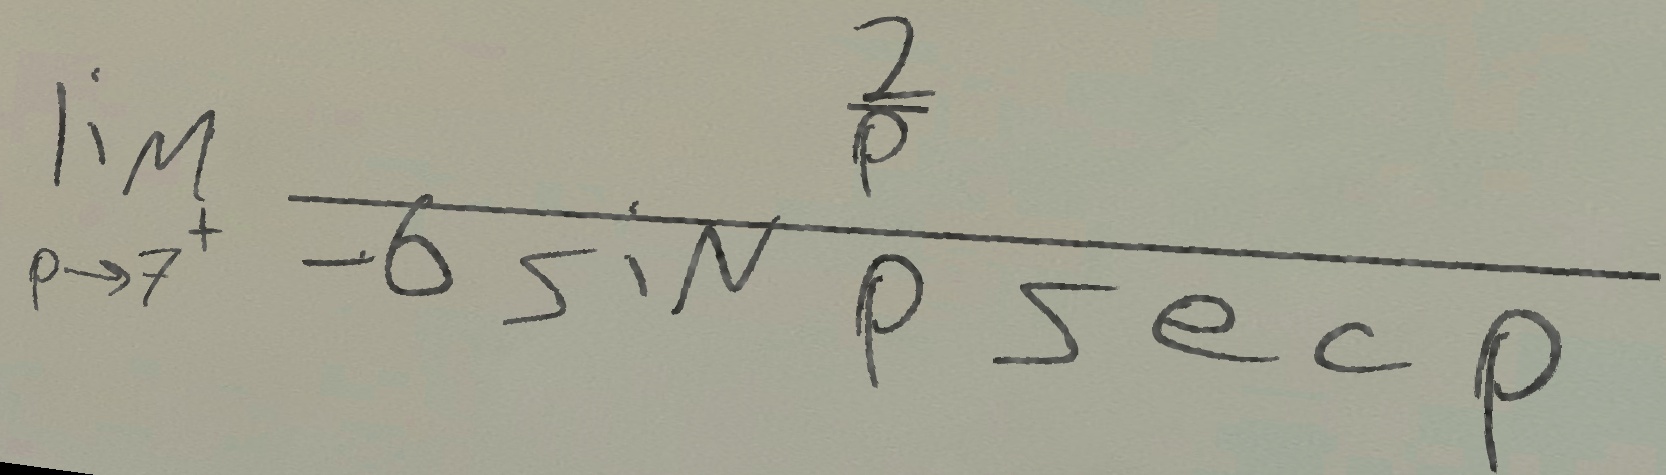 \lim_{p \to 7^+} \frac{\frac{2}{p}}{-6 \sin p \sec p}